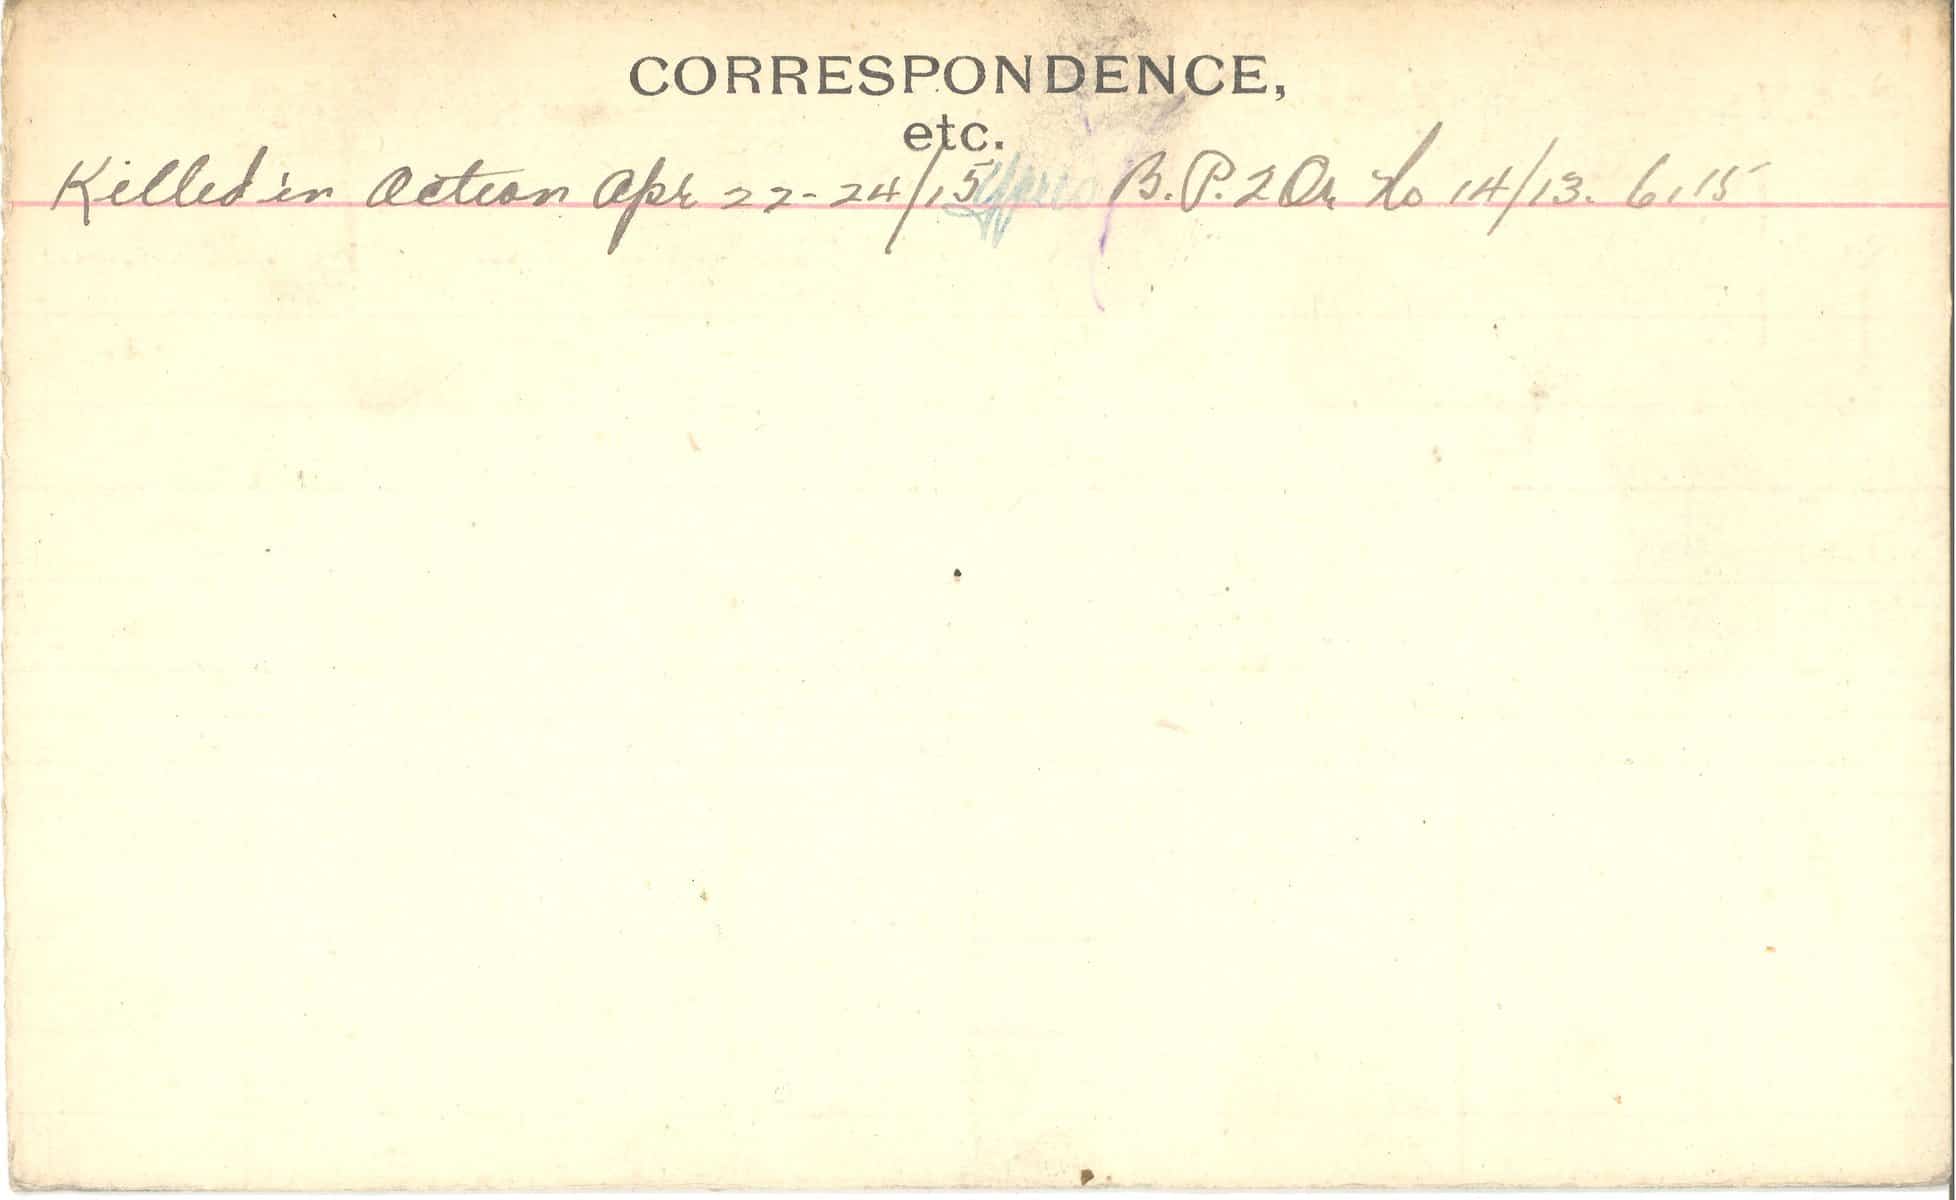 CORRESPONDENCE,
etc.
Killed in Action Apr 22-24/15 Ypres B.P. 2 Or No 14/13. 6,15